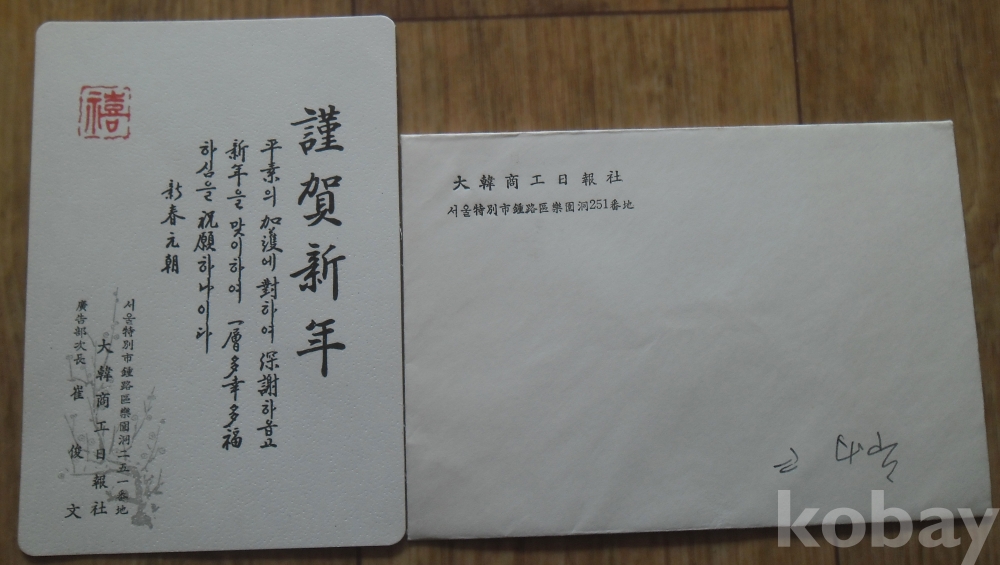 謹賀新年
平素의 加護에 對하여 深謝하옵고
新年을 맞이하여 一層多幸多福
하심을 祝願하나이다
新春元朝
서울特別市鍾路區樂園洞二五一番地
大韓商工日報社
廣告部次長 崔俊文
禧
大韓商工日報社
서울特別市鍾路區樂園洞251番地
kobay